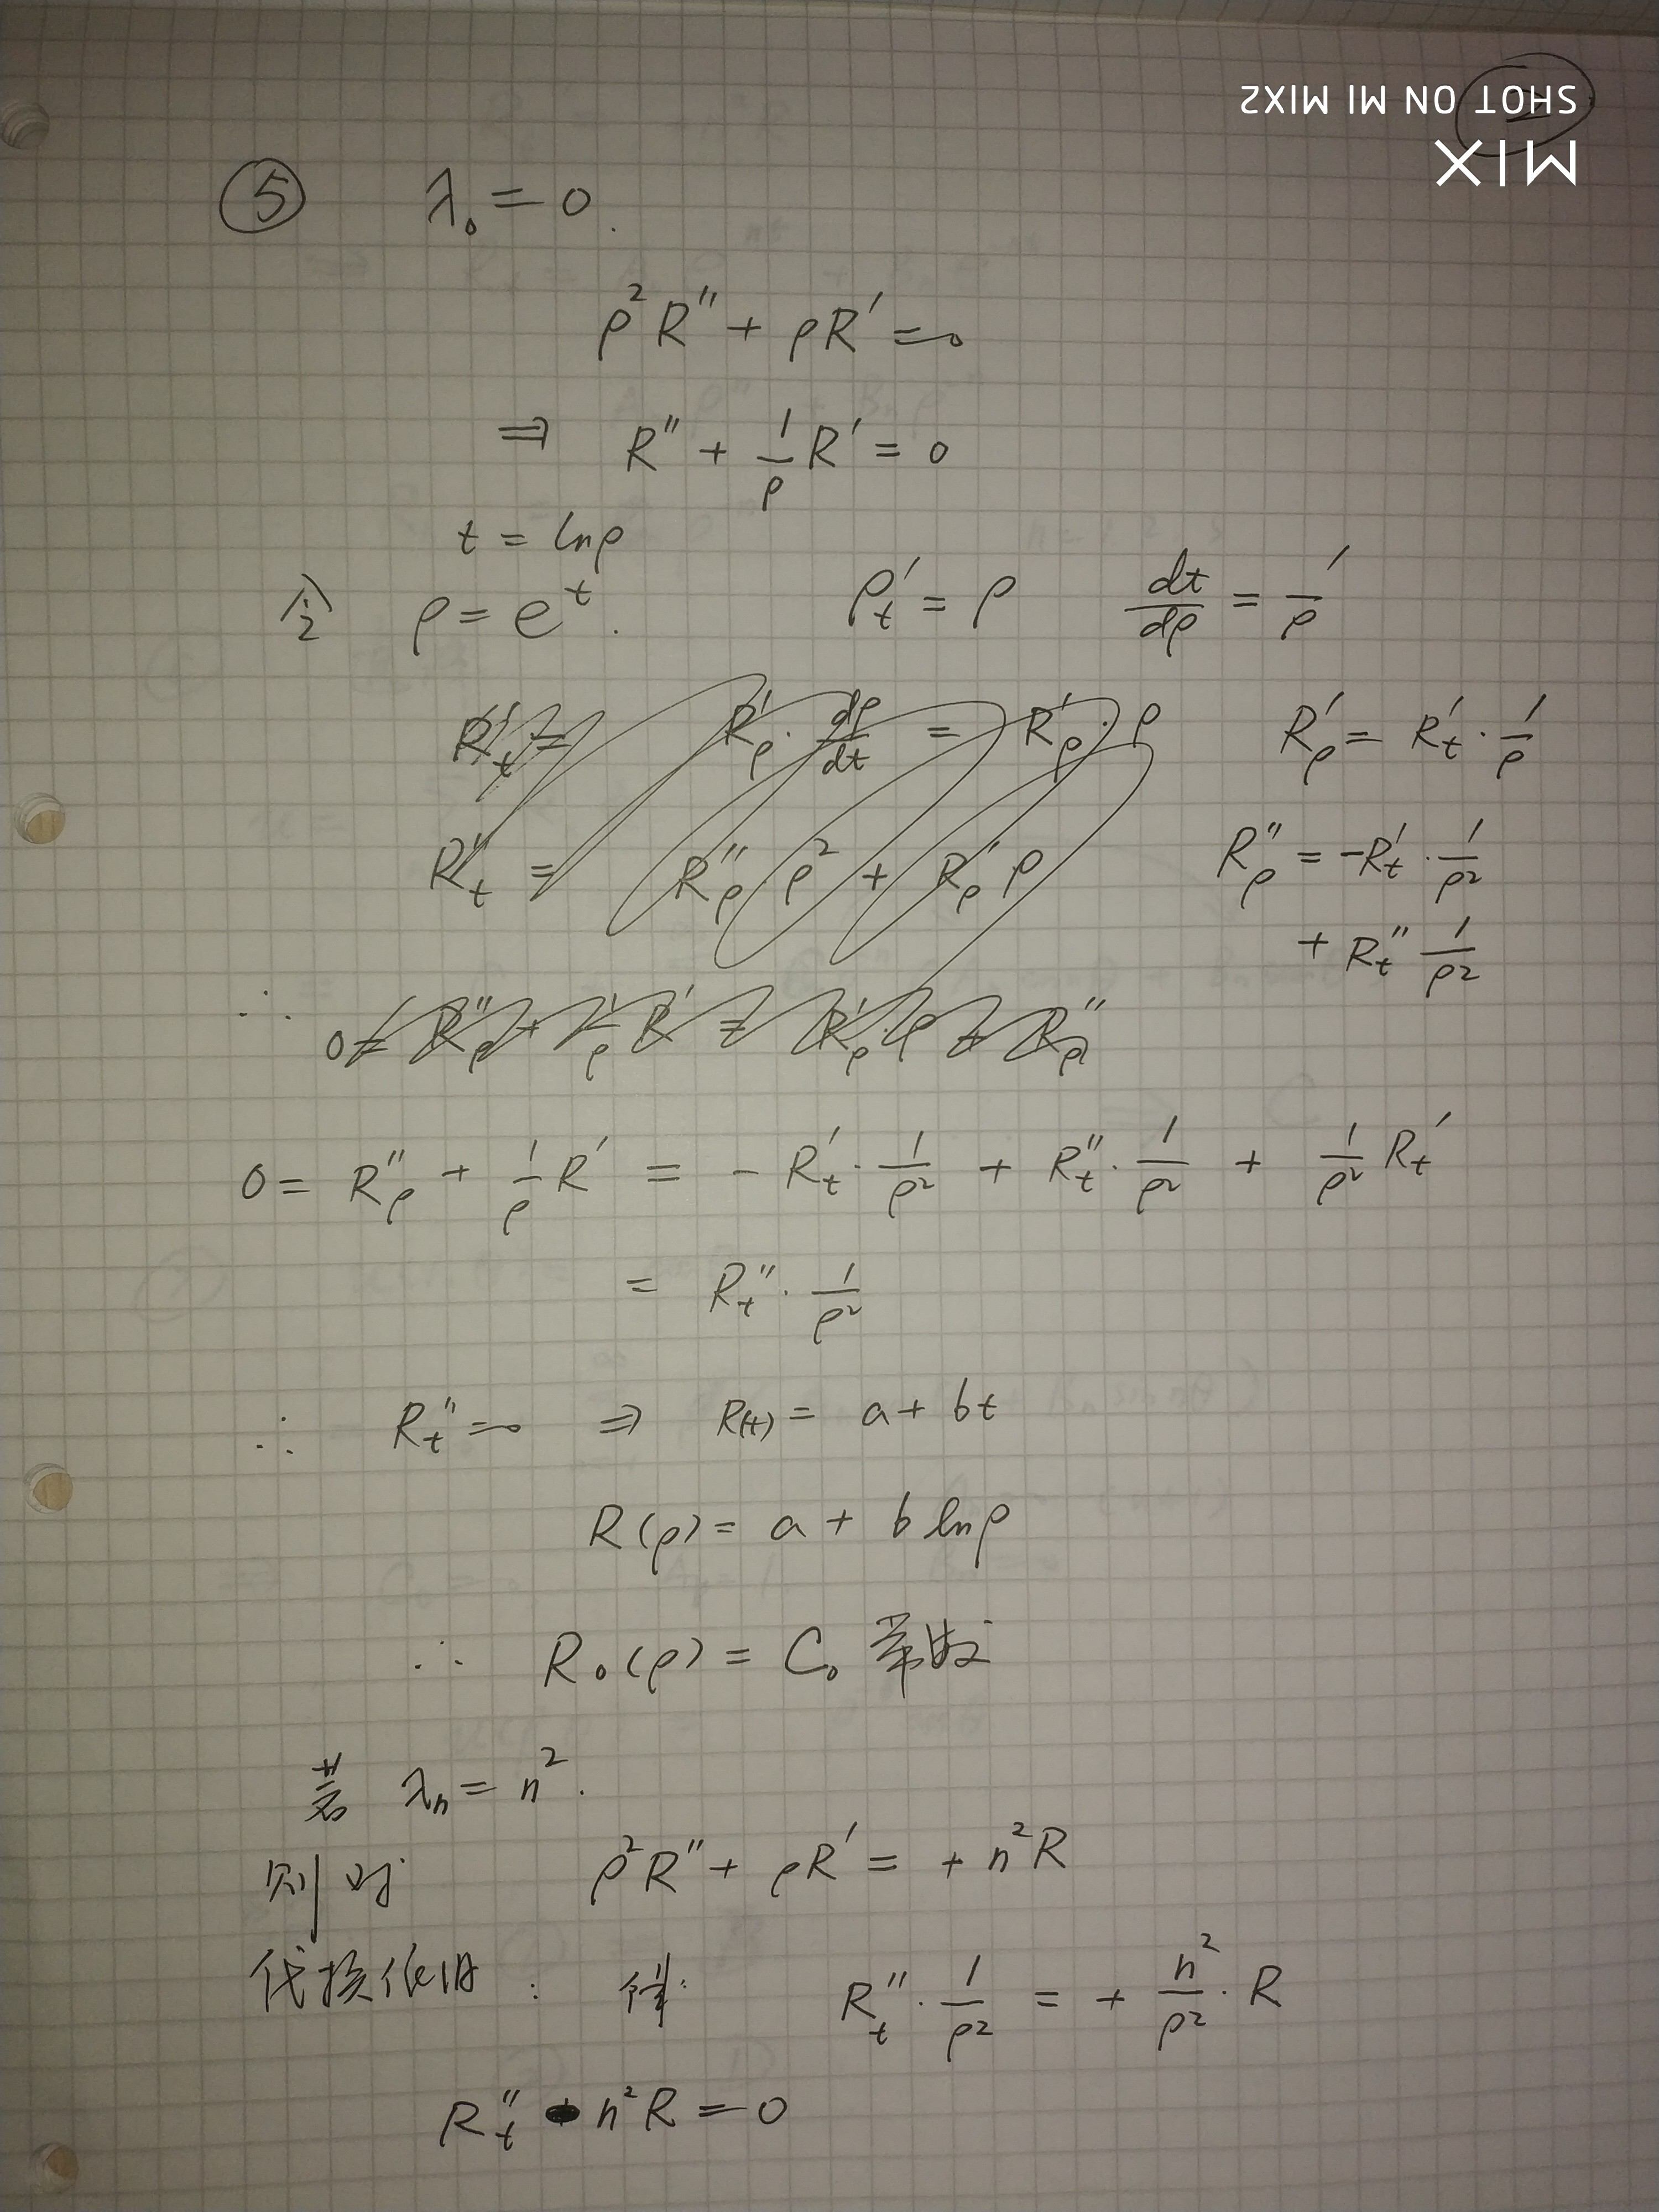 SHOT ON MI MIX2
MIX
⑤ λ₀ = 0.
ρ²R″ + ρR′ = 0
⇒ R″ + 1/ρ R′ = 0
t = lnρ
令 ρ = e^t. ρ′_t = ρ dt/dρ = 1/ρ
R′_t = R′_ρ · dρ/dt = R′_ρ · ρ R′_ρ = R′_t · 1/ρ
R″_t = R″_ρ ρ² + R′_ρ ρ R″_ρ = -R′_t · 1/ρ²
+ R″_t 1/ρ²
∴ 0 = R″_ρ + 1/ρ R′ = R′_ρ · ρ + R″_ρ
0 = R″_ρ + 1/ρ R′ = - R′_t · 1/ρ² + R″_t · 1/ρ² + 1/ρ² R′_t
= R″_t · 1/ρ²
∴ R″_t = 0 ⇒ R(t) = a + bt
R(ρ) = a + b lnρ
∴ R₀(ρ) = C₀ 常数
若 λₙ = n².
则对 ρ²R″ + ρR′ = + n²R
代换依旧 : 得: R″_t · 1/ρ² = + n²/ρ² · R
R″_t - n²R = 0